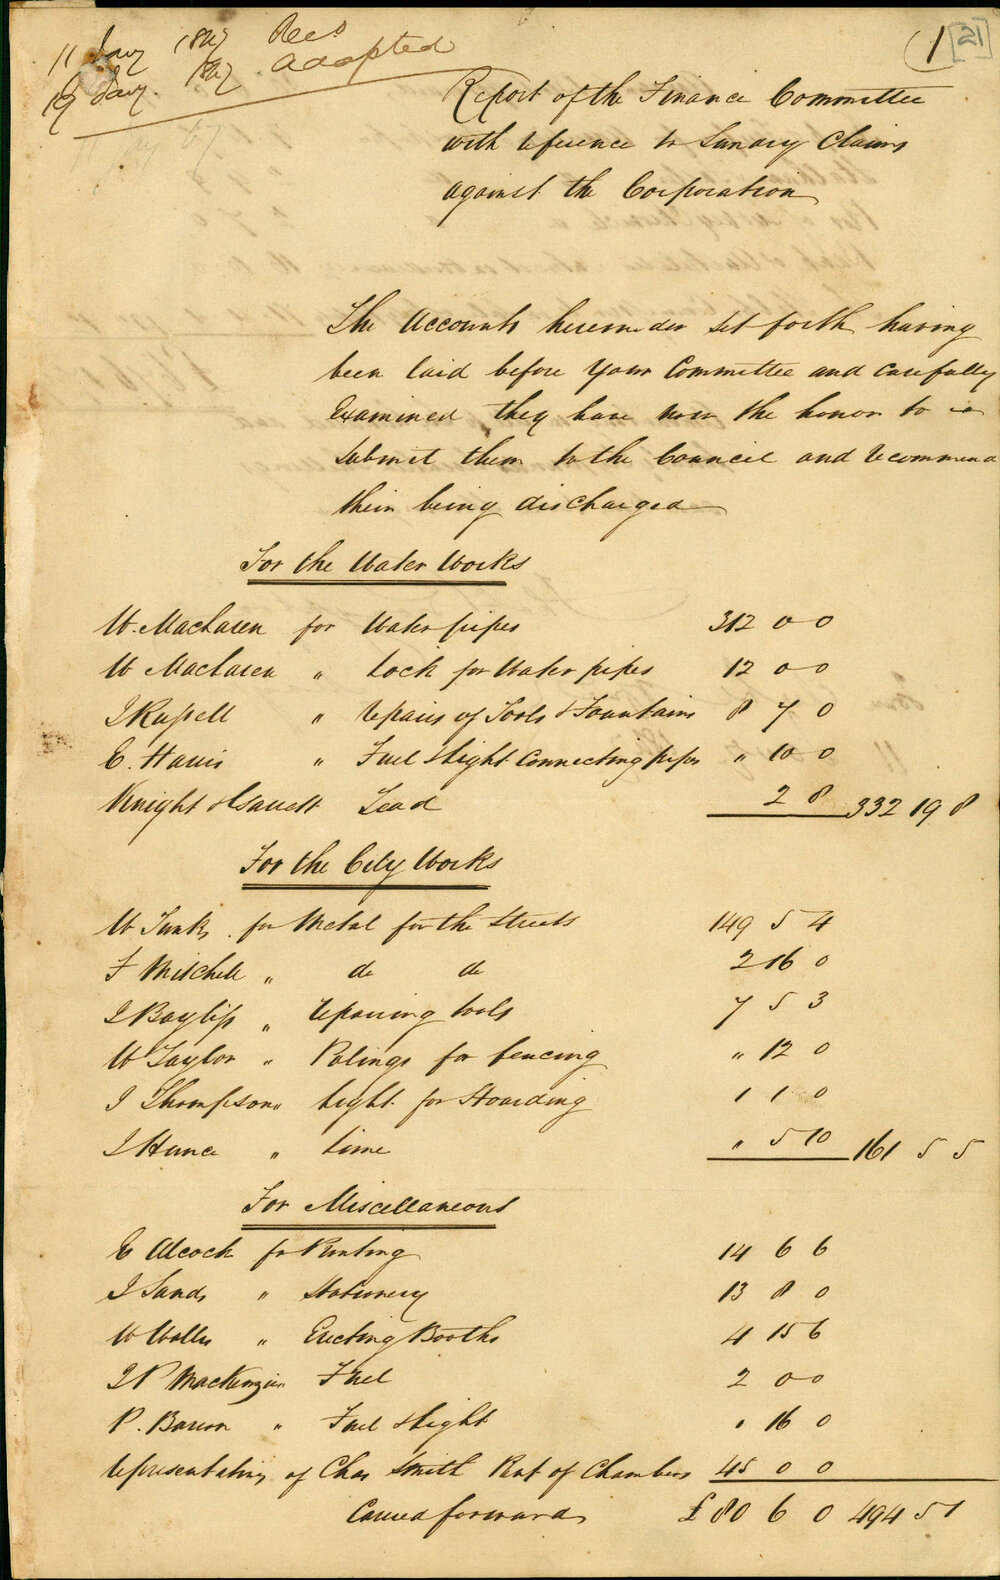 11 Jany 1847 Read
19 Jany. 1847. adopted
(1 [21]
Report of the Finance Committee
with reference to Sundry Claims
against the Corporation
The Accounts hereunder set forth having
been laid before Your Committee and carefully
Examined they have now the honor to
submit them to the Council and recommend
their being discharged
For the Water Works
W. MacLaren for Water pipes 312 0 0
W MacLaren " Lock for Water pipes 12 0 0
J Russell " repairs of Tools & Fountains 8 7 0
E. Harris " Fuel & light Connecting pipes " 10 0
Knight & Garrett Lead 2 8 332 19 8
For the City Works
W Tunks for Metal for the Streets 149 5 4
F Mitchell " do do 2 16 0
J Bayliss " repairing tools 7 5 3
W Taylor " Palings for fencing " 12 0
J Thompson " light for Hoarding 1 1 0
J Hunce " Lime " 5 10 161 5 5
For Miscellaneous
E Alcock for Printing 14 6 6
J Sands " Stationery 13 8 0
W Wallis " Erecting Booths 4 15 6
J P MacKenzie " Fuel 2 0 0
P. Barron " Fuel & light " 16 0
representatives of Chas Smith Rent of Chambers 45 0 0
Carried forward £ 80 6 0 494 5 1